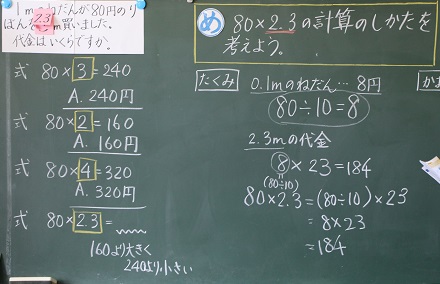 1mのねだんが80円のり
ぼんを2.3m買いました。
代金はいくらですか。
式 80×3=240
A. 240円
式 80×2=160
A. 160円
式 80×4=320
A. 320円
式 80×2.3=
160より大きく
240より小さい
め 80×2.3の計算のしかたを
考えよう。
たくみ
0.1mのねだん…8円
80÷10=8
2.3mの代金
8×23=184
(80÷10)
80×2.3=(80÷10)×23
=8×23
=184
か